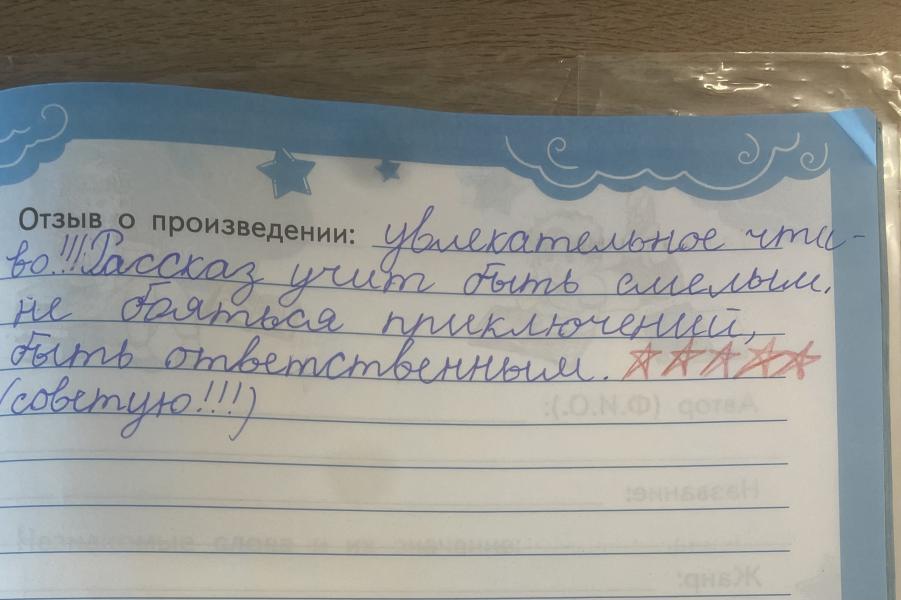 Отзыв о произведении: увлекательное чти-
во!!! Рассказ учит быть смелым,
не бояться приключений,
быть ответственным. ☆☆☆☆☆
(советую!!!)
Автор (Ф.И.О.):
Название:
Жанр: